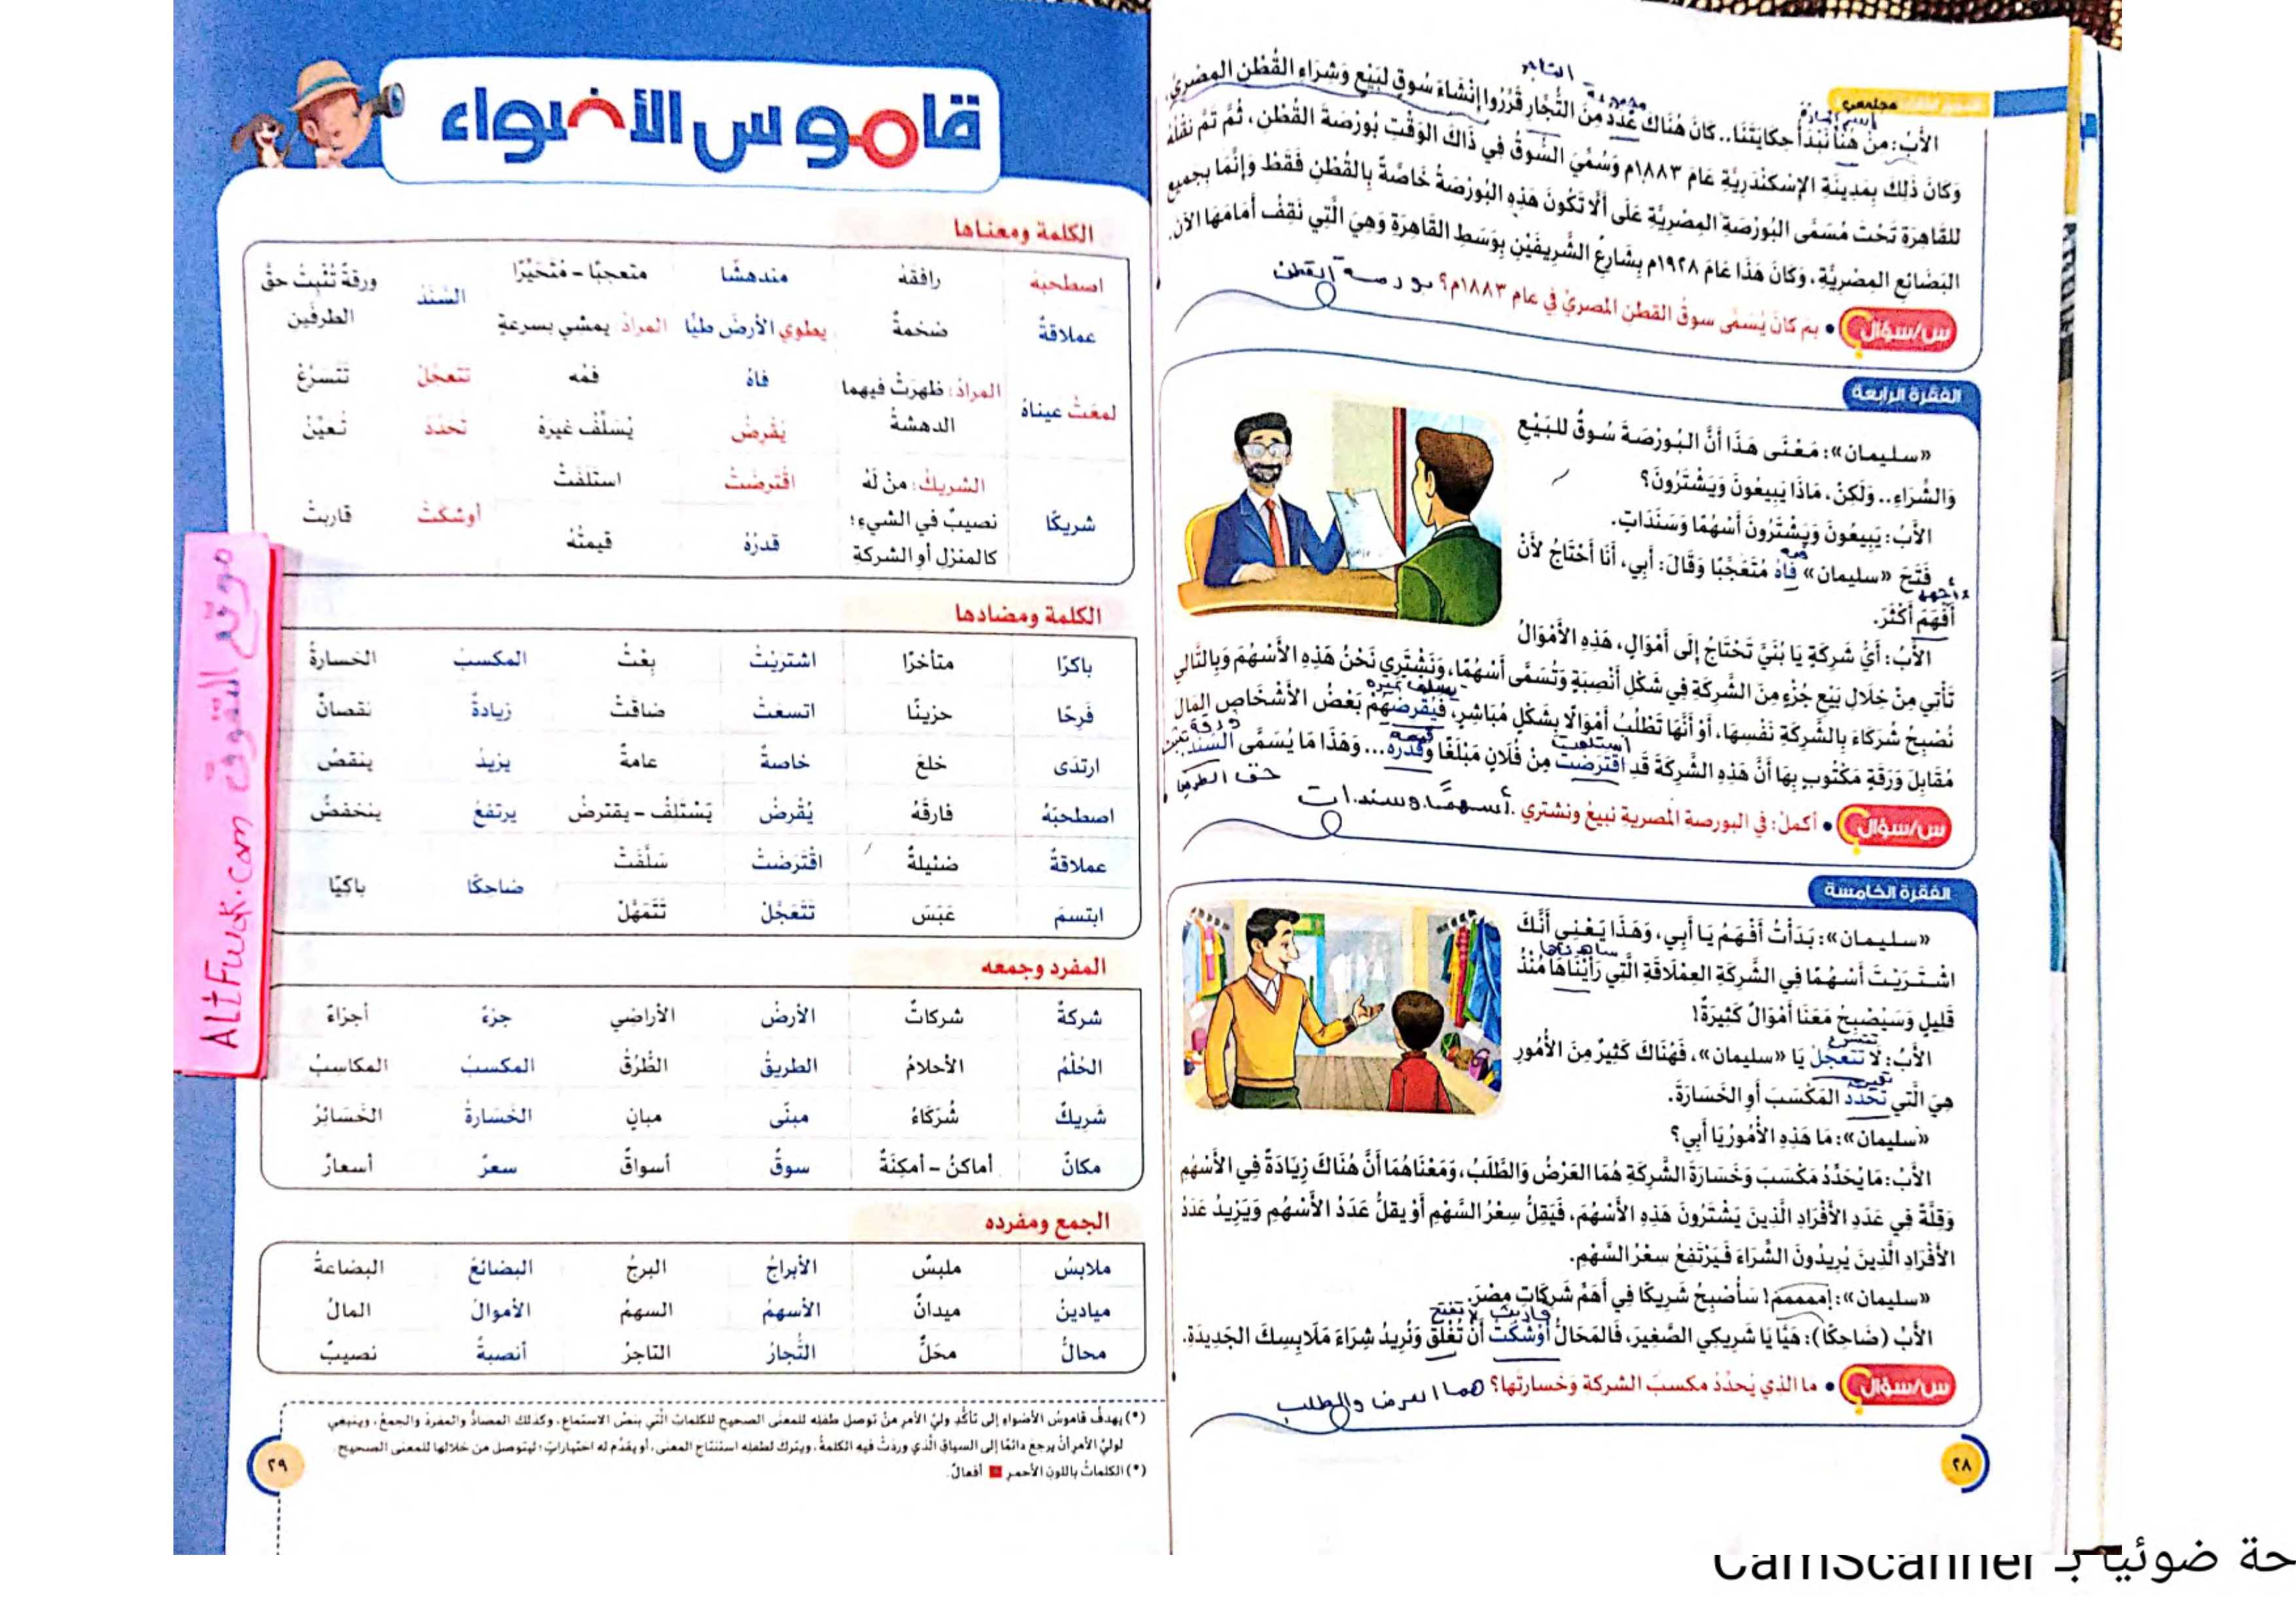 مجتمعي
الأَبُ: مِنْ هُنَا نَبْدَأُ حِكَايَتَنَا.. كَانَ هُنَاكَ عَدَدٌ مِنَ التُّجَّارِ قَرَّرُوا إِنْشَاءَ سُوقٍ لِبَيْعِ وَشِرَاءِ القُطْنِ المِصْرِيِّ،
وَكَانَ ذَلِكَ بِمَدِينَةِ الإِسْكَنْدَرِيَّةِ عَامَ ١٨٨٣م وَسُمِّيَ السُّوقُ فِي ذَاكَ الوَقْتِ بُورْصَةَ القُطْنِ، ثُمَّ تَمَّ نَقْلُهُ
للقَاهِرَةِ تَحْتَ مُسَمَّى البُورْصَةِ المِصْرِيَّةِ عَلَى أَلَّا تَكُونَ هَذِهِ البُورْصَةُ خَاصَّةً بِالقُطْنِ فَقَطْ وَإِنَّمَا بِجَمِيعِ
البَضَائِعِ المِصْرِيَّةِ، وَكَانَ هَذَا عَامَ ١٩٢٨م بِشَارِعِ الشَّرِيفَيْنِ بِوَسَطِ القَاهِرَةِ وَهِيَ الَّتِي نَقِفُ أَمَامَهَا الآنَ.
س/سؤال • بم كانَ يُسَمَّى سوقُ القطنِ المصريِّ في عام ١٨٨٣م؟ بورصة القطن
الفقرة الرابعة
«سليمان»: مَعْنَى هَذَا أَنَّ البُورْصَةَ سُوقٌ للبَيْعِ
وَالشِّرَاءِ.. وَلَكِنْ، مَاذَا يَبِيعُونَ وَيَشْتَرُونَ؟
الأَبُ: يَبِيعُونَ وَيَشْتَرُونَ أَسْهُمًا وَسَنَدَاتٍ.
فمه
فَتَحَ «سليمان» فَاهُ مُتَعَجِّبًا وَقَالَ: أَبِي، أَنَا أَحْتَاجُ لأَنْ
أَفْهَمَ أَكْثَرَ.
الأَبُ: أَيُّ شَرِكَةٍ يَا بُنَيَّ تَحْتَاجُ إِلَى أَمْوَالٍ، هَذِهِ الأَمْوَالُ
تَأْتِي مِنْ خِلَالِ بَيْعِ جُزْءٍ مِنَ الشَّرِكَةِ فِي شَكْلِ أَنْصِبَةٍ وَتُسَمَّى أَسْهُمًا، وَنَشْتَرِي نَحْنُ هَذِهِ الأَسْهُمَ وَبِالتَّالِي
يسلف غيره
نُصْبِحُ شُرَكَاءَ بِالشَّرِكَةِ نَفْسِهَا، أَوْ أَنَّهَا تَطْلُبُ أَمْوَالًا بِشَكْلٍ مُبَاشِرٍ، فَيُقْرِضُهُمْ بَعْضُ الأَشْخَاصِ المَالَ
استلفت قيمته ورقة تثبت
مُقَابِلَ وَرَقَةٍ مَكْتُوبٍ بِهَا أَنَّ هَذِهِ الشَّرِكَةَ قَدِ اقْتَرَضَتْ مِنْ فُلَانٍ مَبْلَغًا وَقَدْرُهُ... وَهَذَا مَا يُسَمَّى السَّنَدَ.
حق الطرفين
س/سؤال • أكمل: في البورصةِ المصريةِ نبيعُ ونشتري أسهمًا وسندات
الفقرة الخامسة
«سليمان»: بَدَأْتُ أَفْهَمُ يَا أَبِي، وَهَذَا يَعْنِي أَنَّكَ
شاهدناها
اشْتَرَيْتَ أَسْهُمًا فِي الشَّرِكَةِ العِمْلَاقَةِ الَّتِي رَأَيْنَاهَا مُنْذُ
قَلِيلٍ وَسَيُصْبِحُ مَعَنَا أَمْوَالٌ كَثِيرَةٌ!
تتسرع
الأَبُ: لَا تَتَعَجَّلْ يَا «سليمان»، فَهُنَاكَ كَثِيرٌ مِنَ الأُمُورِ
تعين
هِيَ الَّتِي تُحَدِّدُ المَكْسَبَ أَوِ الخَسَارَةَ.
«سليمان»: مَا هَذِهِ الأُمُورُ يَا أَبِي؟
الأَبُ: مَا يُحَدِّدُ مَكْسَبَ وَخَسَارَةَ الشَّرِكَةِ هُمَا العَرْضُ وَالطَّلَبُ، وَمَعْنَاهُمَا أَنَّ هُنَاكَ زِيَادَةً فِي الأَسْهُمِ
وَقِلَّةً فِي عَدَدِ الأَفْرَادِ الَّذِينَ يَشْتَرُونَ هَذِهِ الأَسْهُمَ، فَيَقِلُّ سِعْرُ السَّهْمِ أَوْ يَقِلُّ عَدَدُ الأَسْهُمِ وَيَزِيدُ عَدَدُ
الأَفْرَادِ الَّذِينَ يُرِيدُونَ الشِّرَاءَ فَيَرْتَفِعُ سِعْرُ السَّهْمِ.
«سليمان»: امممم! سَأُصْبِحُ شَرِيكًا فِي أَهَمِّ شَرِكَاتِ مِصْرَ.
قاربت لا تفتح
الأَبُ (ضَاحِكًا): هَيَّا يَا شَرِيكِي الصَّغِيرَ، فَالمَحَالُّ أَوْشَكَتْ أَنْ تُغْلَقَ وَنُرِيدُ شِرَاءَ مَلَابِسِكَ الجَدِيدَةِ.
س/سؤال • ما الذي يُحدِّدُ مكسبَ الشركة وَخَسارتَها؟ هما العرض والطلب
٢٨
قاموس الأضواء
الكلمة ومعناها
اصطحبَهُ رافقَهُ مندهشًا متعجبًا - مُتَحَيِّرًا السَّنَدُ ورقةٌ تُثْبِتُ حقَّ الطرفَين
عملاقةٌ ضخمةٌ يطوي الأرضَ طيًّا المرادُ: يمشي بسرعةٍ
لمعَتْ عيناهُ المرادُ: ظهرَتْ فيهما الدهشةُ فاهُ فمُه تتعجَّلْ تَتَسَرَّعْ
يُقْرِضُ يُسَلِّفُ غيرَهُ تُحَدِّدُ تُعيِّنُ
شريكًا الشريكُ: مَنْ لَهُ نصيبٌ في الشيءِ؛ كالمنزلِ أو الشركةِ اقْترضَتْ استَلَفَتْ أوشكَتْ قاربتْ
قدرُهُ قيمتُهُ
الكلمة ومضادها
باكرًا متأخرًا اشتريْتُ بِعْتُ المكسبُ الخسارةُ
فَرِحًا حزينًا اتسعَتْ ضاقَتْ زيادةٌ نقصانٌ
ارتدَى خلعَ خاصةٌ عامةٌ يزيدُ ينقصُ
اصطحبَهُ فارقَهُ يُقْرِضُ يَسْتَلِفُ - يقترضُ يرتفعُ ينخفضُ
عملاقةٌ ضئيلةٌ اقْتَرَضَتْ سَلَّفَتْ ضاحكًا باكيًا
ابتسمَ عَبَسَ تَتَعَجَّلْ تَتَمَهَّلْ
المفرد وجمعه
شركةٌ شركاتٌ الأرضُ الأراضي جزءٌ أجزاءٌ
الحُلْمُ الأحلامُ الطريقُ الطُّرُقُ المكسبُ المكاسبُ
شَريكٌ شُرَكَاءُ مبنًى مبانٍ الخَسارةُ الخَسَائِرُ
مكانٌ أماكنُ - أمكِنَةٌ سوقٌ أسواقٌ سعرٌ أسعارٌ
الجمع ومفرده
ملابسُ ملبسٌ الأبراجُ البرجُ البضائعُ البضاعةُ
ميادينُ ميدانٌ الأسهمُ السهمُ الأموالُ المالُ
محالُّ محَلٌّ التُّجارُ التاجرُ أنصبةٌ نصيبٌ
(*) يهدفُ قاموسُ الأضواءِ إلى تأكُّدِ وليِّ الأمرِ مِنْ توصلِ طفلِه للمعنى الصحيحِ للكلماتِ الَّتي بنصِّ الاستماعِ، وكذلك المضادُّ والمفردُ والجمعُ، وينبغي
لوليِّ الأمرِ أنْ يرجعَ دائمًا إلى السياقِ الَّذي وردَتْ فيه الكلمةُ، ويتركَ لطفلِه استنتاجَ المعنى، أو يقدِّمَ له اختياراتٍ؛ ليتوصلَ من خلالِها للمعنى الصحيحِ.
(*) الكلماتُ باللونِ الأحمرِ أفعالٌ.
٢٩
موقع التفوق
ALtFwok.com
حة ضوئيا بـ CamScanner